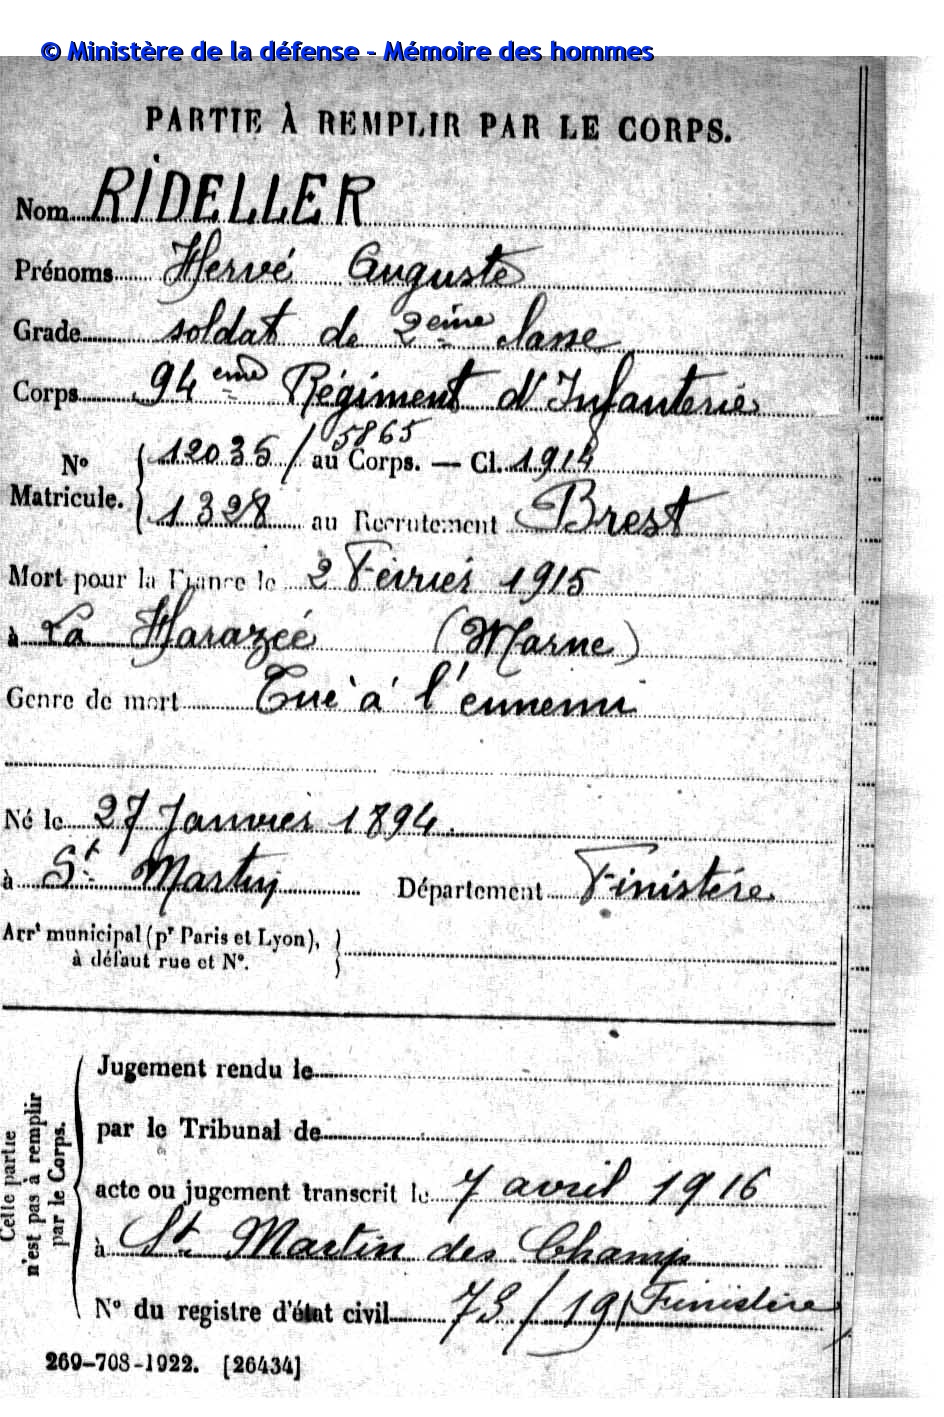 © Ministère de la défense - Mémoire des hommes
PARTIE À REMPLIR PAR LE CORPS.
Nom RIDELLER
Prénoms Hervé Auguste
Grade soldat de 2ème classe
Corps 94ème Régiment d'Infanterie
5865
12035 / au Corps. — Cl. 1914
N° Matricule.
1328 au Recrutement Brest
Mort pour la France le 2 Février 1915
à La Harazéé (Marne)
Genre de mort Tué à l'ennemi
Né le 27 Janvier 1894.
à St Martin Département Finistère
Arrt municipal (pr Paris et Lyon),
à défaut rue et N°.
Cette partie
n'est pas à remplir
par le Corps.
Jugement rendu le
par le Tribunal de
acte ou jugement transcrit le 7 avril 1916
à St Martin des Champs
N° du registre d'état civil 73/19 Finistère
269-708-1922. [26434]